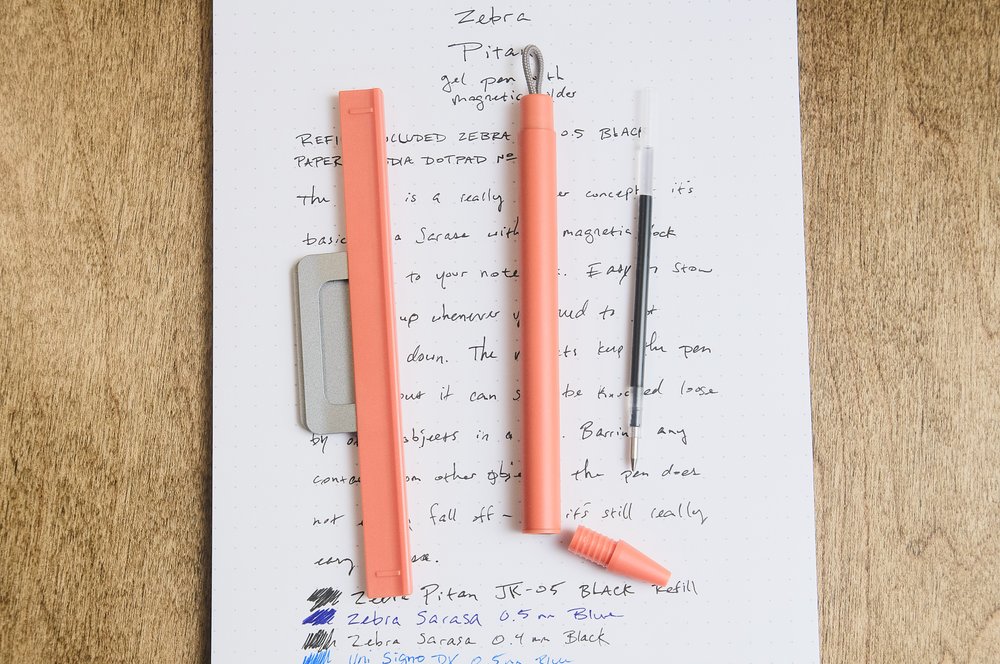 Zebra
Pitan
gel pen with
magnetic holder
REFI CLUDED ZEBRA 0.5 BLACK
PAPER DIA DOTPAD Nº
The is a really er concept - it's
basic a Sarasa with magnetic dock
to your note . Easy to stow
up whenever y need to
down. The ts keep the pen
but it can s be knocked loose
by o objects in a . Barring any
conta om other obje the pen does
not fall off - it's still really
easy se.
Zebra Pitan JK-05 BLACK Refill
Zebra Sarasa 0.5 mm Blue
Zebra Sarasa 0.4 mm Black
Uni Signo DX 0.5 mm Blue